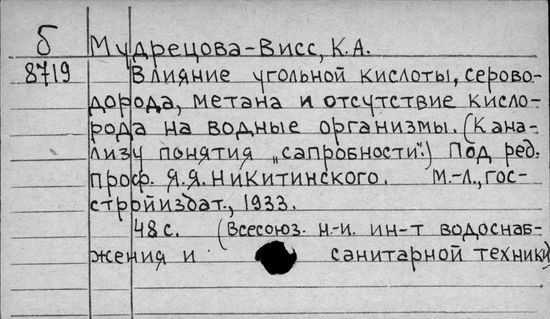 б Мудрецова-Висс, К.А.
8719 Влияние угольной кислоты, серово-
дорода, метана и отсутствие кисло-
рода на водные организмы. (К ана-
лизу понятия „сапробности".) Под ред.
проф. Я.Я. Никитинского. М.-Л., гос-
стройиздат., 1933.
48 с. (Всесоюз. н.-и. ин-т водоснаб-
жения и санитарной техники)